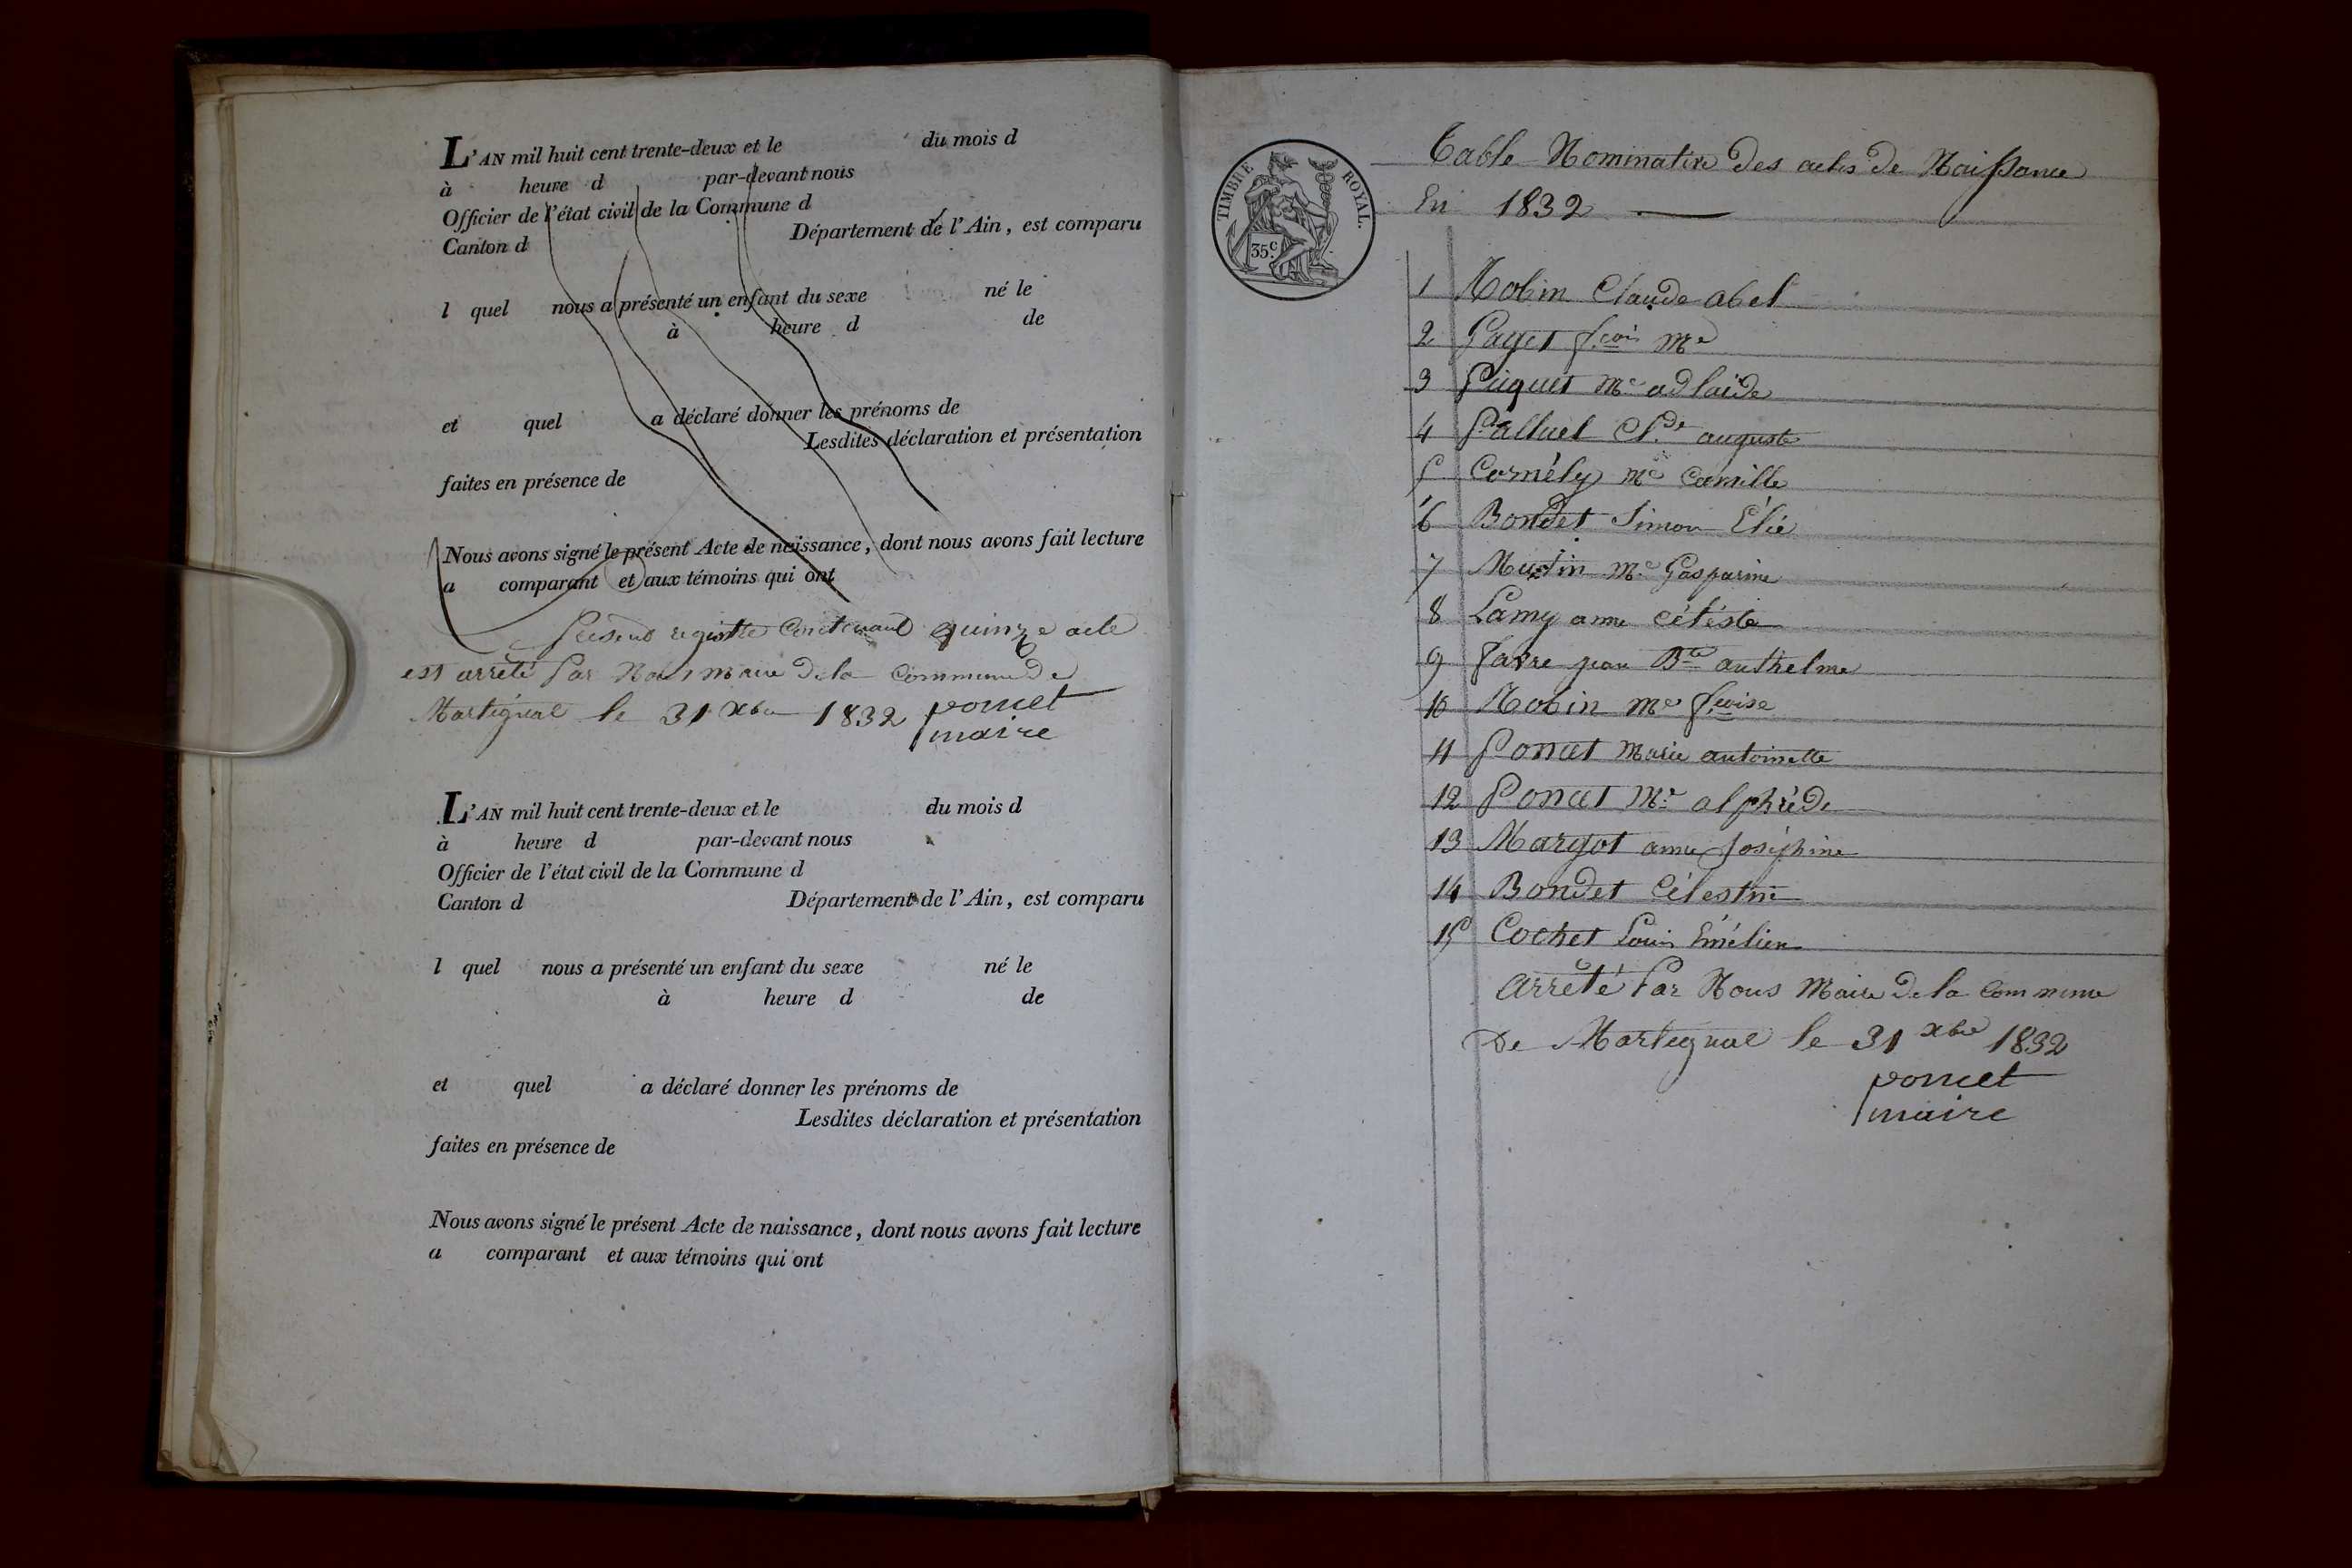 L'AN mil huit cent trente-deux et le du mois d
à heure d par-devant nous
Officier de l'état civil de la Commune d
Canton d Département de l'Ain, est comparu
l quel nous a présenté un enfant du sexe né le
à heure d de
et quel a déclaré donner les prénoms de
Lesdites déclaration et présentation
faites en présence de
Nous avons signé le présent Acte de naissance, dont nous avons fait lecture
a comparant et aux témoins qui ont
registre Contenant quinze acte
est arrêté Par Nous maire de la Commune de
Martignat le 31 Xbre 1832 poncet
maire
L'AN mil huit cent trente-deux et le du mois d
à heure d par-devant nous
Officier de l'état civil de la Commune d
Canton d Département de l'Ain, est comparu
l quel nous a présenté un enfant du sexe né le
à heure d de
et quel a déclaré donner les prénoms de
Lesdites déclaration et présentation
faites en présence de
Nous avons signé le présent Acte de naissance, dont nous avons fait lecture
a comparant et aux témoins qui ont
TIMBRE ROYAL.
35c.
Table Nominative Des actes De Naissance
En 1832
1 Robin Claude abel
2 Paget f.cois Me
3 Puquet Me adlaide
4 Palluel Cl.de auguste
5 Cornély Me Camille
6 Bondet Simon Elie
7 Mustin Me Gasparine
8 Lamy anne céleste
9 favre jean Bte anthelme
10 Robin Me f.coise
11 Poncet Marie antoinette
12 Poncet Me alphrède
13 Margot anne Joséphine
14 Bondet Célestin
15 Cochet Louis Emélien
arrêté Par Nous Maire de la Commune
De Martignat le 31 xbre 1832
poncet
maire